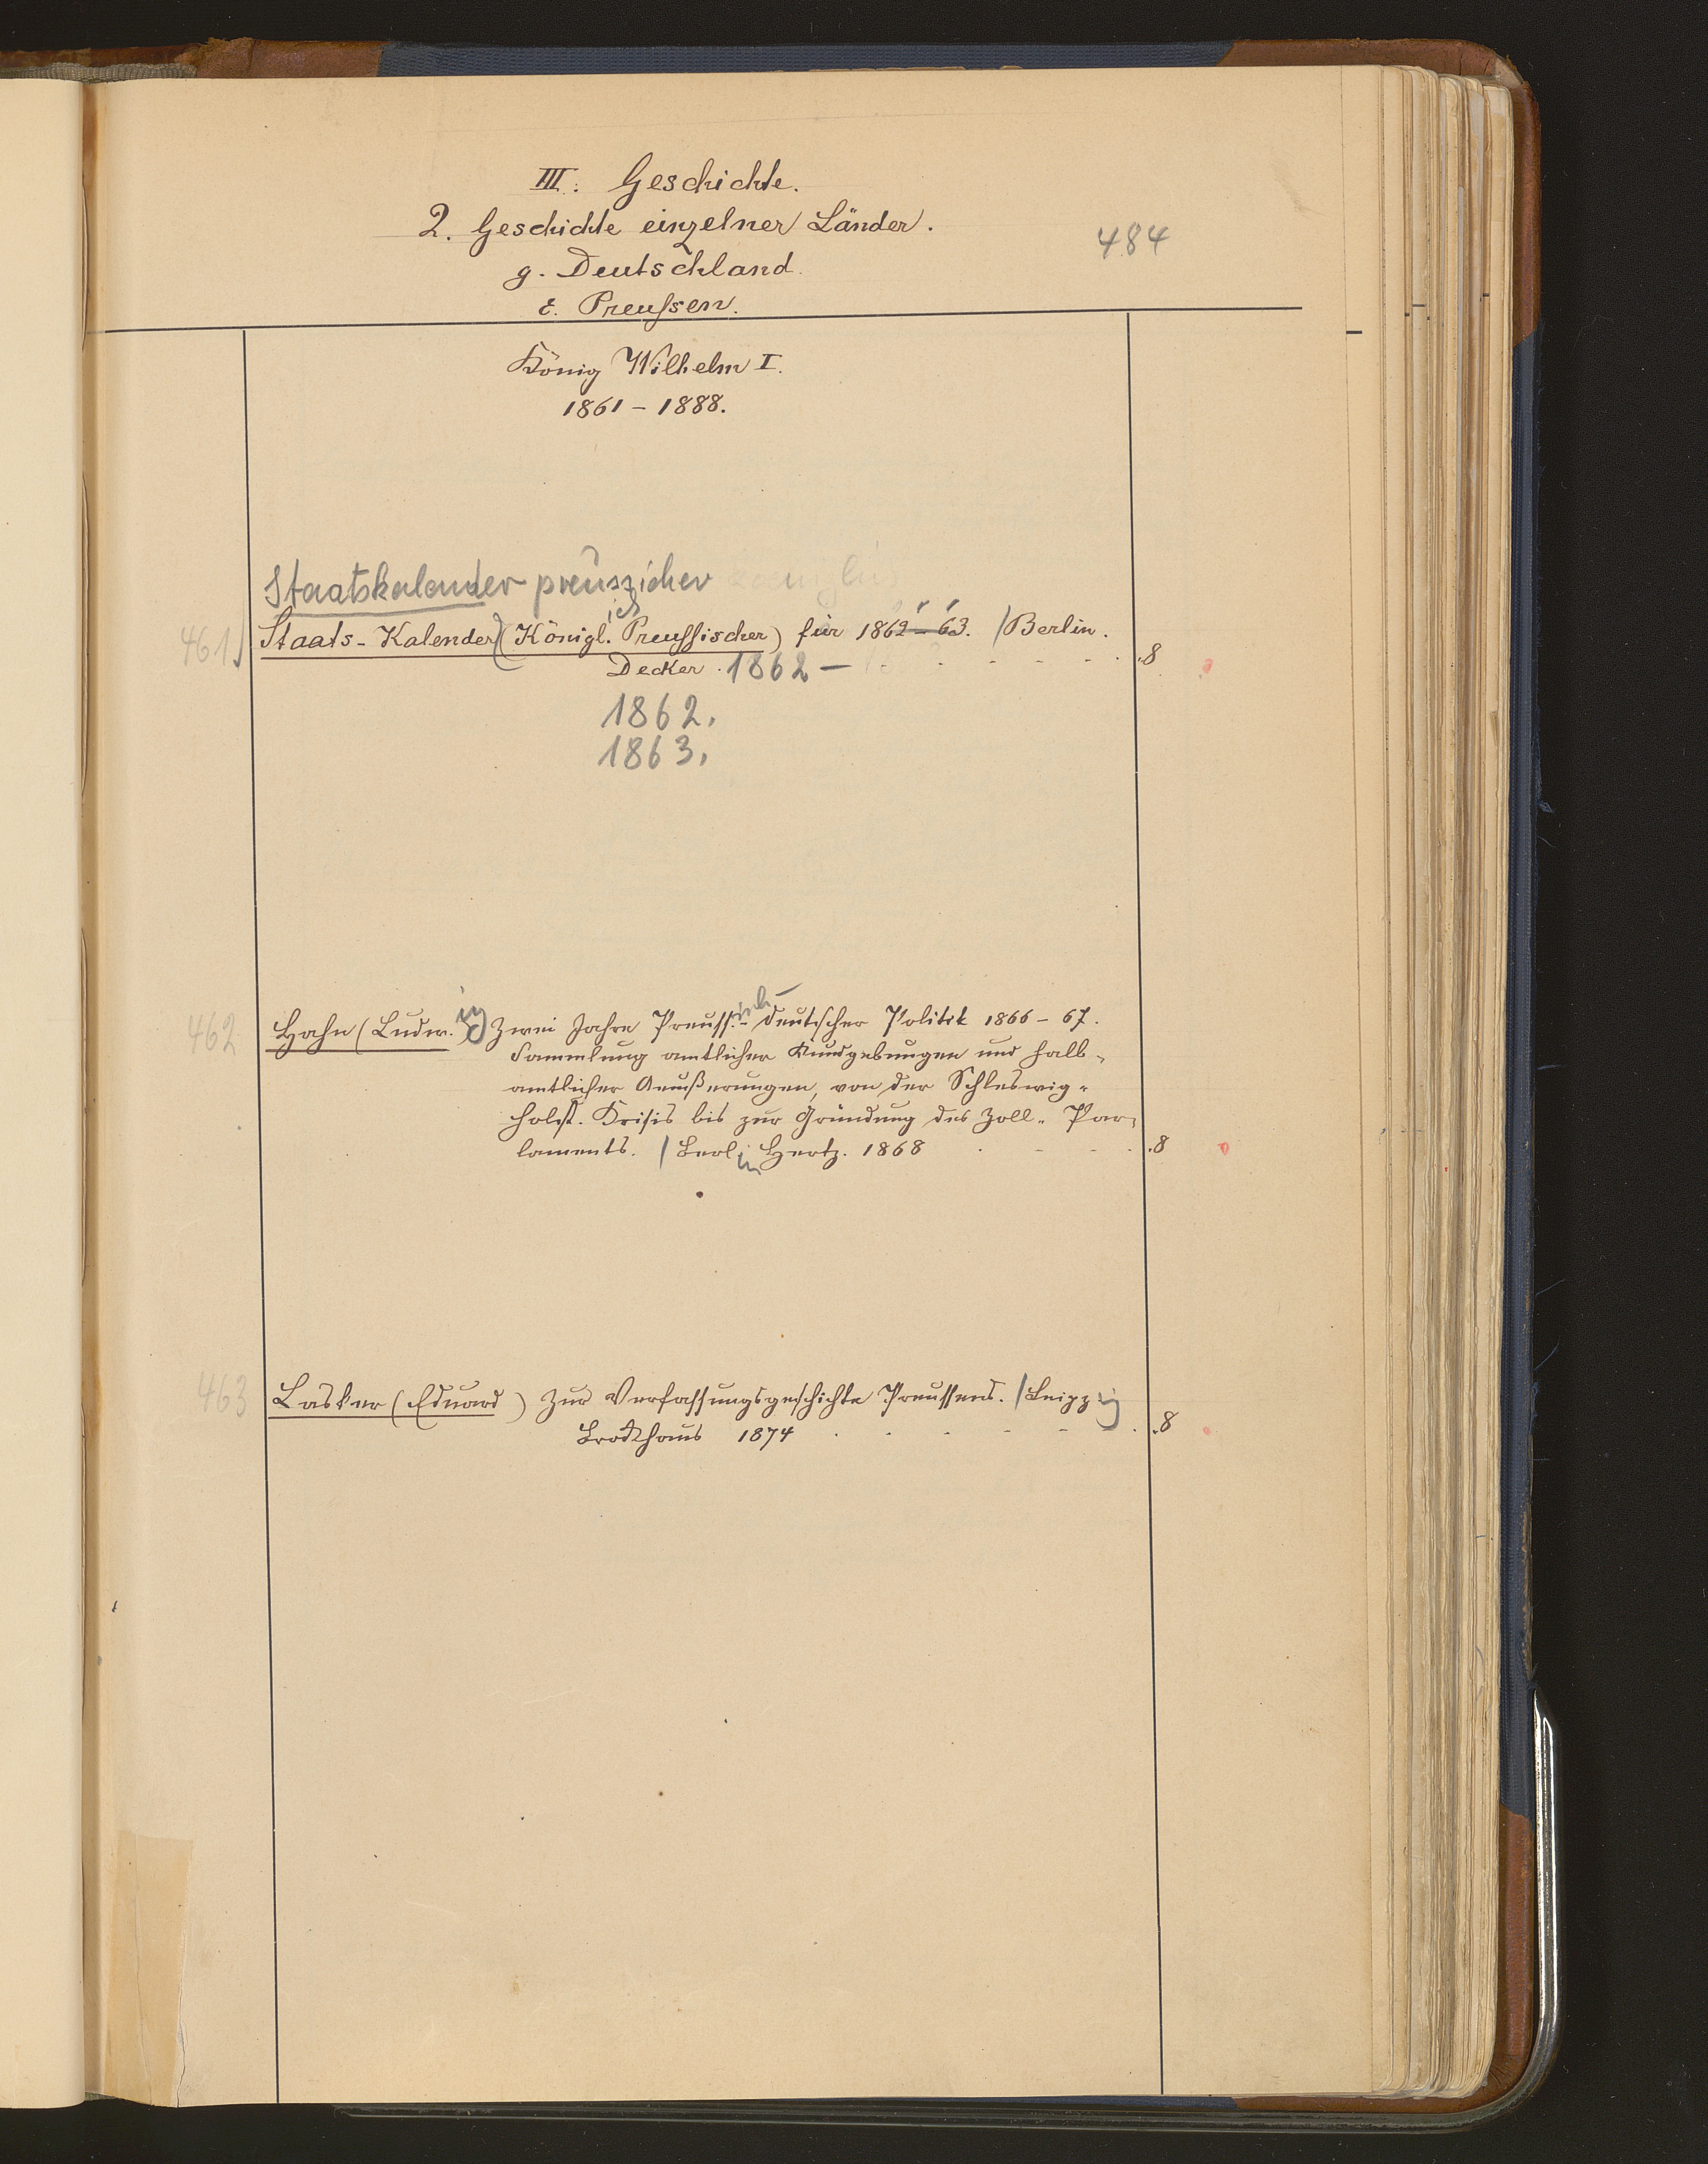 III. Geschichte.
2. Geschichte einzelner Länder.
484
g. Deutschland.
ε. Preußen.
König Wilhelm I.
1861 – 1888.
Staatskalender preuszischer
461 Staats-Kalender (Königl. ich Preussischer) für 1862–63. / Berlin.
Decker. 1862 – . . . . . . 8
1862.
1863.
462 Hahn (Ludw. ig) Zwei Jahre Preuss. isch- deutscher Politik 1866 – 67.
Sammlung amtlicher Kundgebungen und halb-
amtlicher Aeußerungen, von der Schleswig-
Holst. Krisis bis zur Gründung des Zoll-Par-
laments. / Berl. in Hertz. 1868 . . . . 8
463 Lasker (Eduard) Zur Verfassungsgeschichte Preussens. / Leipzig
Brockhaus 1874 . . . . . . 8